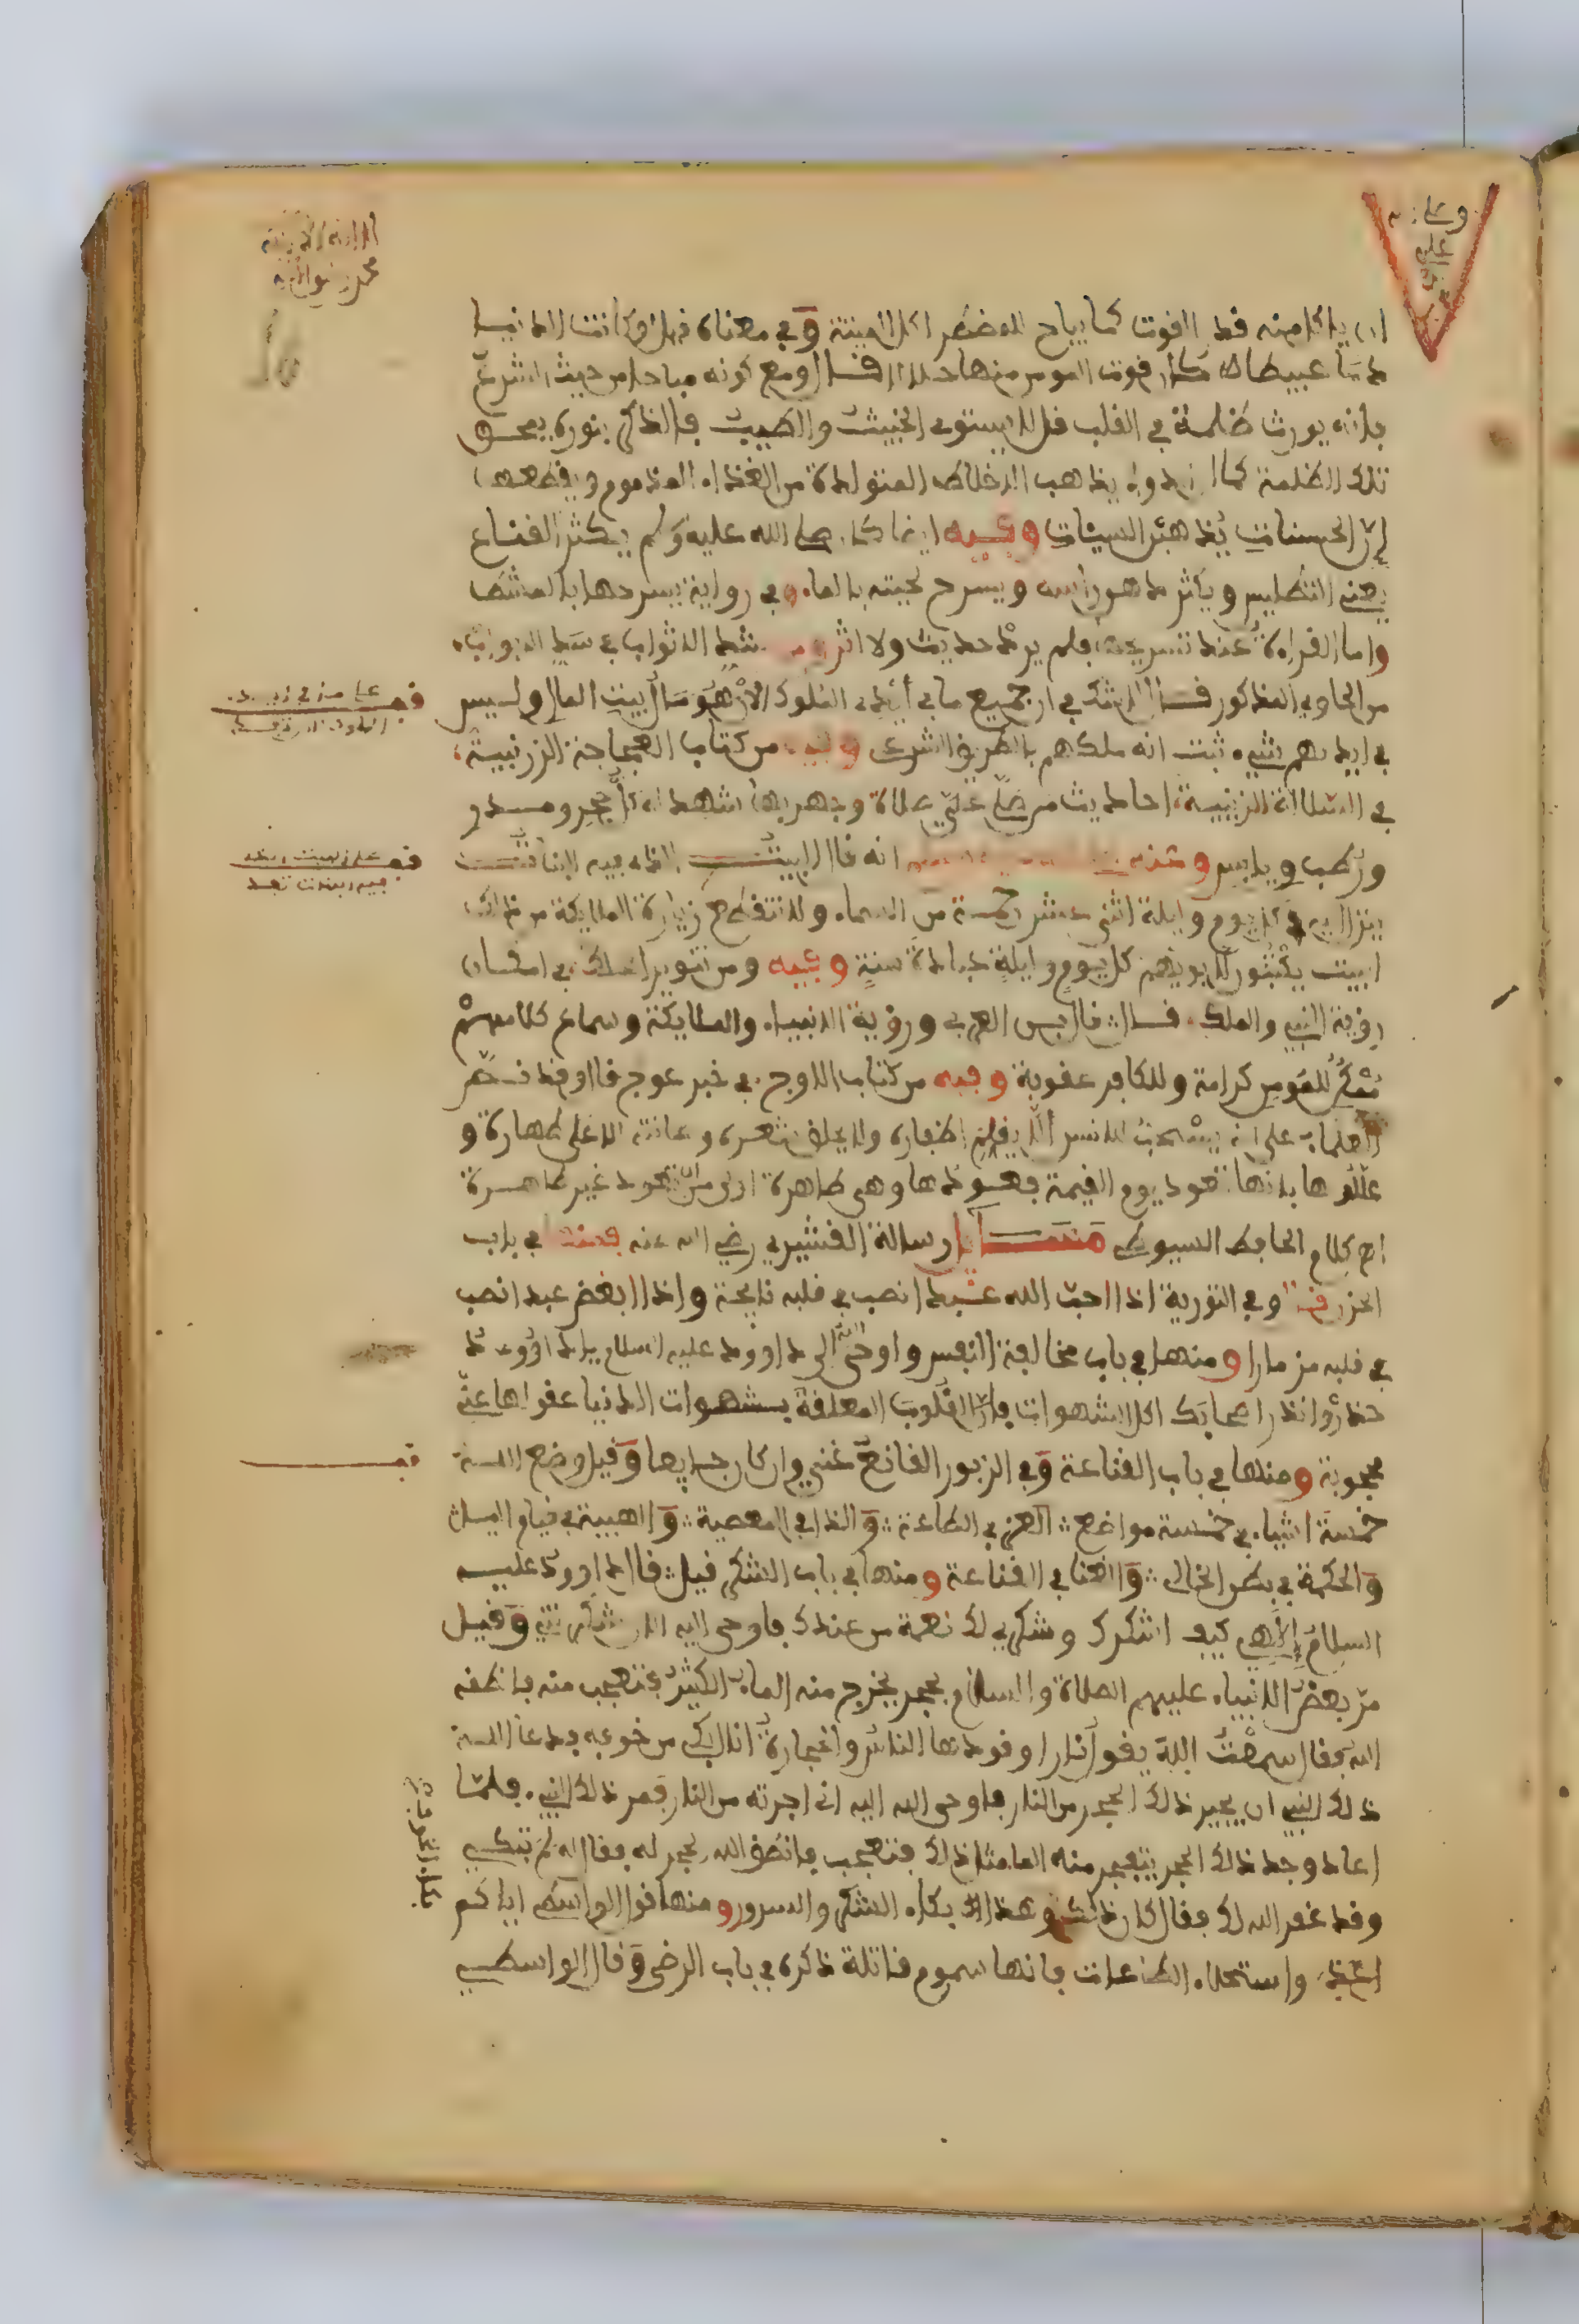 ان ياكل منه قدر القوت كما يباح للمضطر اكل الميتة وفي معناه قيل لو كانت الدنيا
دما عبيطا لكان قوت المومن منها حلالا قال ومع كونه مباحا من حيث الشرع
فانه يورث ظلمة في القلب قل لا يستوى الخبيث والطيب فالذكر بنوره يمحو
تلك الظلمة كما ان الدواء يذهب الاخلاط المتولدة من الغذاء المذموم ويقطعها
ان الحسنات يذهبن السيئات وفيه ايضا كان صلى الله عليه وسلم يكثر القناع
يعني التطليس ويكثر دهن راسه ويسرح لحيته بالماء وفي رواية يسرحها بالمشط
واما القراءة عند تسريحها فلم يرد حديث ولا اثر الاثواب في سد الابواب
من الحاوي المذكور قال لا شك في ان جميع ما في ايدي الملوك الان هو مال بيت المال وليس
في ايديهم شيء ثبت انه ملكهم بالطريق الشرعي وفيه من كتاب العجاجة الزرنبية
في السلالة الزينبية احاديث من صلى علي صلاة وجهر بها شهد له كل حجر ومدر
ورطب ويابس انه قال البيت الذي فيه البنات
ينزل الله في كل يوم وليلة اثنى عشر رحمة من السماء ولا تنقطع زيارة الملايكة من ذلك
البيت يكتبون لابويهم كل يوم وليلة عبادة سنة وفيه ومن تنوير الحلك في امكان
رؤية النبي والملك قال قال ابن العربي ورؤية الانبياء والملايكة وسماع كلامهم
ممكن للمومن كرامة وللكافر عقوبة وفيه من كتاب الاوج في خبر عوج قال وقد نص
العلماء على انه يستحب للانسان الا يقلم اظفاره ولا يحلق شعره وعانته الا على طهارة و
عللوها بانها تعود يوم القيمة فعودها وهي طاهرة اولى من ان تعود غير طاهرة
اه كلام الحافظ السيوطي رسالة القشيري رضي الله عنه فمنها في باب
الحزن قيل وفي التورية اذا احب الله عبدا نصب في قلبه نايحة واذا ابغض عبدا نصب
في قلبه مزمارا ومنها في باب مخالفة النفس واوحى الله الى داوود عليه السلام يا داوود
حذر وانذر اصحابك اكل الشهوات فان القلوب المعلقة بشهوات الدنيا عقولها عني
محجوبة ومنها في باب القناعة وفي الزبور القانع غني وان كان جايعا وقيل وضع الله
خمسة اشياء في خمسة مواضع العز في الطاعة والذل في المعصية والهيبة في قيام الليل
والحكمة في بطن الخالي والغنا في القناعة ومنها في باب الشكر قيل قال داوود عليه
السلام الهي كيف اشكرك وشكري لك نعمة من عندك فاوحى الله اليه الان شكرتني وقيل
مر بعض الانبياء عليهم الصلاة والسلام بحجر يخرج منه الماء الكثير فتعجب منه فانطقه
الله فقال سمعت الله يقول نارا وقودها الناس والحجارة انا ابكي من خوفه فدعا الله
ذلك النبي ان يجير ذلك الحجر من النار فاوحى الله اليه اني اجرته من النار فمر ذلك النبي فلما
اعاد وجد ذلك الحجر يتفجر منه الماء مثل ذلك فتعجب فانطق الله الحجر له فقال له لم تبكي
وقد غفر الله لك فقال كان ذلك وهذا بكاء الشكر والسرور ومنها قول الواسطي اياكم
واستحلاء الطاعات فانها سموم قاتلة ذكره في باب الرضى وقال الواسطي